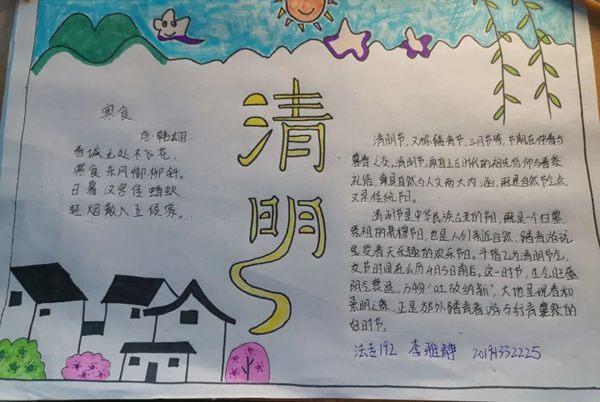 寒食
唐·韩翃
春城无处不飞花,
寒食东风御柳斜。
日暮汉宫传蜡烛,
轻烟散入五侯家。
清明
清明节,又称踏青节、三月节等,节期在仲春与
暮春之交。清明节,源自上古时代的祖先信仰与春祭
礼俗,兼具自然与人文两大内涵,既是自然节气点
又是传统节日。
清明节是中华民族古老的节日,既是一个扫墓
祭祖的肃穆节日,也是人们亲近自然、踏青游玩
享受春天乐趣的欢乐节日。斗指乙为清明节气,
交节时间在公历4月5日前后。这一时节,生气旺盛
阴气衰退,万物"吐故纳新",大地呈现春和
景明之象,正是郊外踏青春游与行清墓祭的
好时节。
法走192 李雅静 20191332225